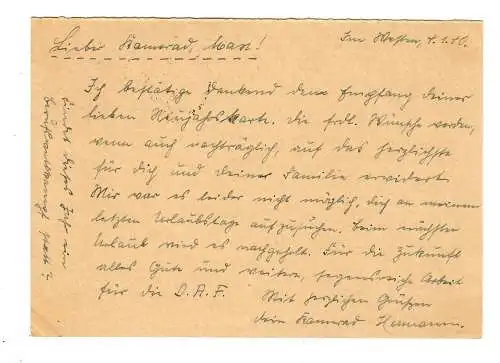 Im Westen, 4.1.40.
Lieber Kamerad, Maxe!
Ich bestätige dankend den Empfang deiner
lieben Neujahrskarte. Die frdl. Wünsche werden,
wenn auch nachträglich, auf das herzlichste
für dich und deiner Familie erwidert.
Mir war es leider nicht möglich, dich an meinem
letzten Urlaubstage aufzusuchen. Beim nächsten
Urlaub wird es nachgeholt. Für die Zukunft
alles Gute und weitere, segensreiche Arbeit
für die D.A.F. Mit herzlichen Grüßen
dein Kamerad Hermann.
Findet dieses Jahr ein
Berufswettkampf statt?